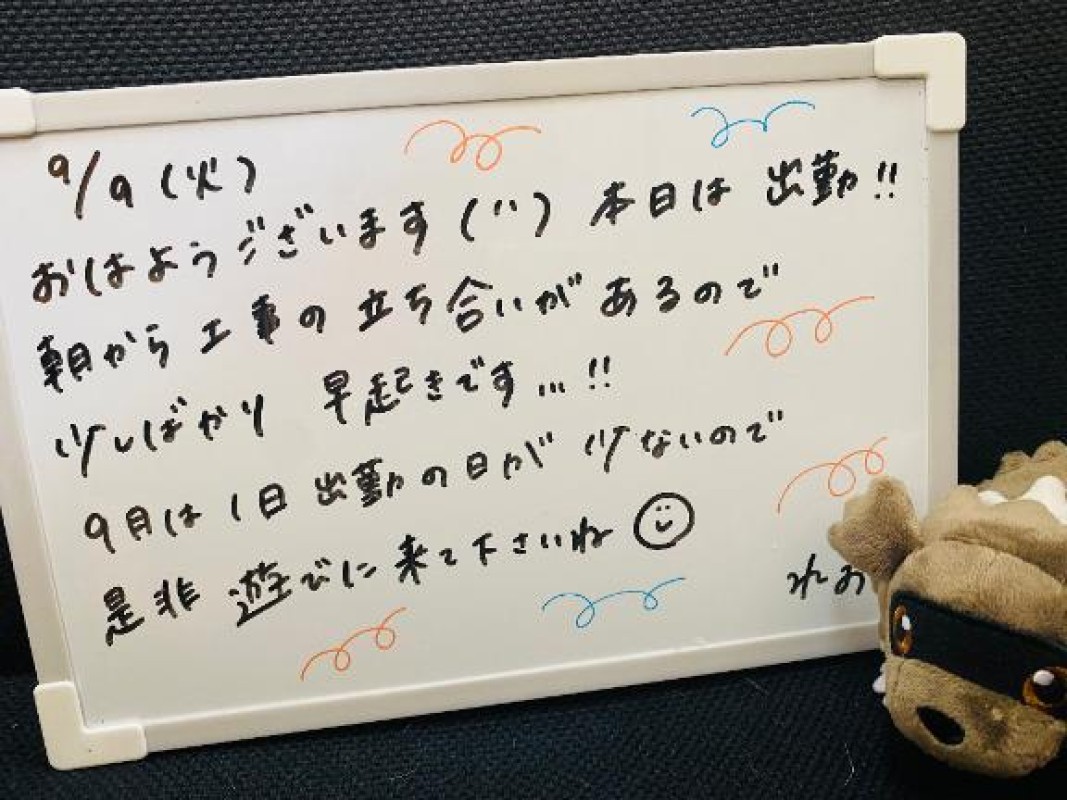 9/9(火)
おはようございます(¨)本日は 出勤!!
朝から工事の立ち合いがあるので
少しばかり 早起きです...!!
9月は1日出勤の日が少ないので
是非 遊びに来て下さいね
れお